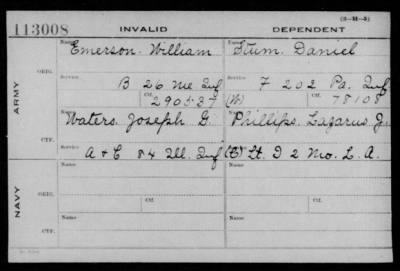 (3-M-3)
113008 INVALID DEPENDENT
Name Emerson. William Name Stum. Daniel
ORIG. Service B 26 Me Inf Service F 202 Pa. Inf
Ctf. 290537 (W) Ctf. 78108
ARMY
Name Waters. Joseph G. Name Phillips. Lazarus J.
CTF. Service A + C 84 Ill. Inf Service Lt. D 2 Mo. L. A.
Name Name
ORIG. Ctf. Ctf.
NAVY
Name Name
CTF.